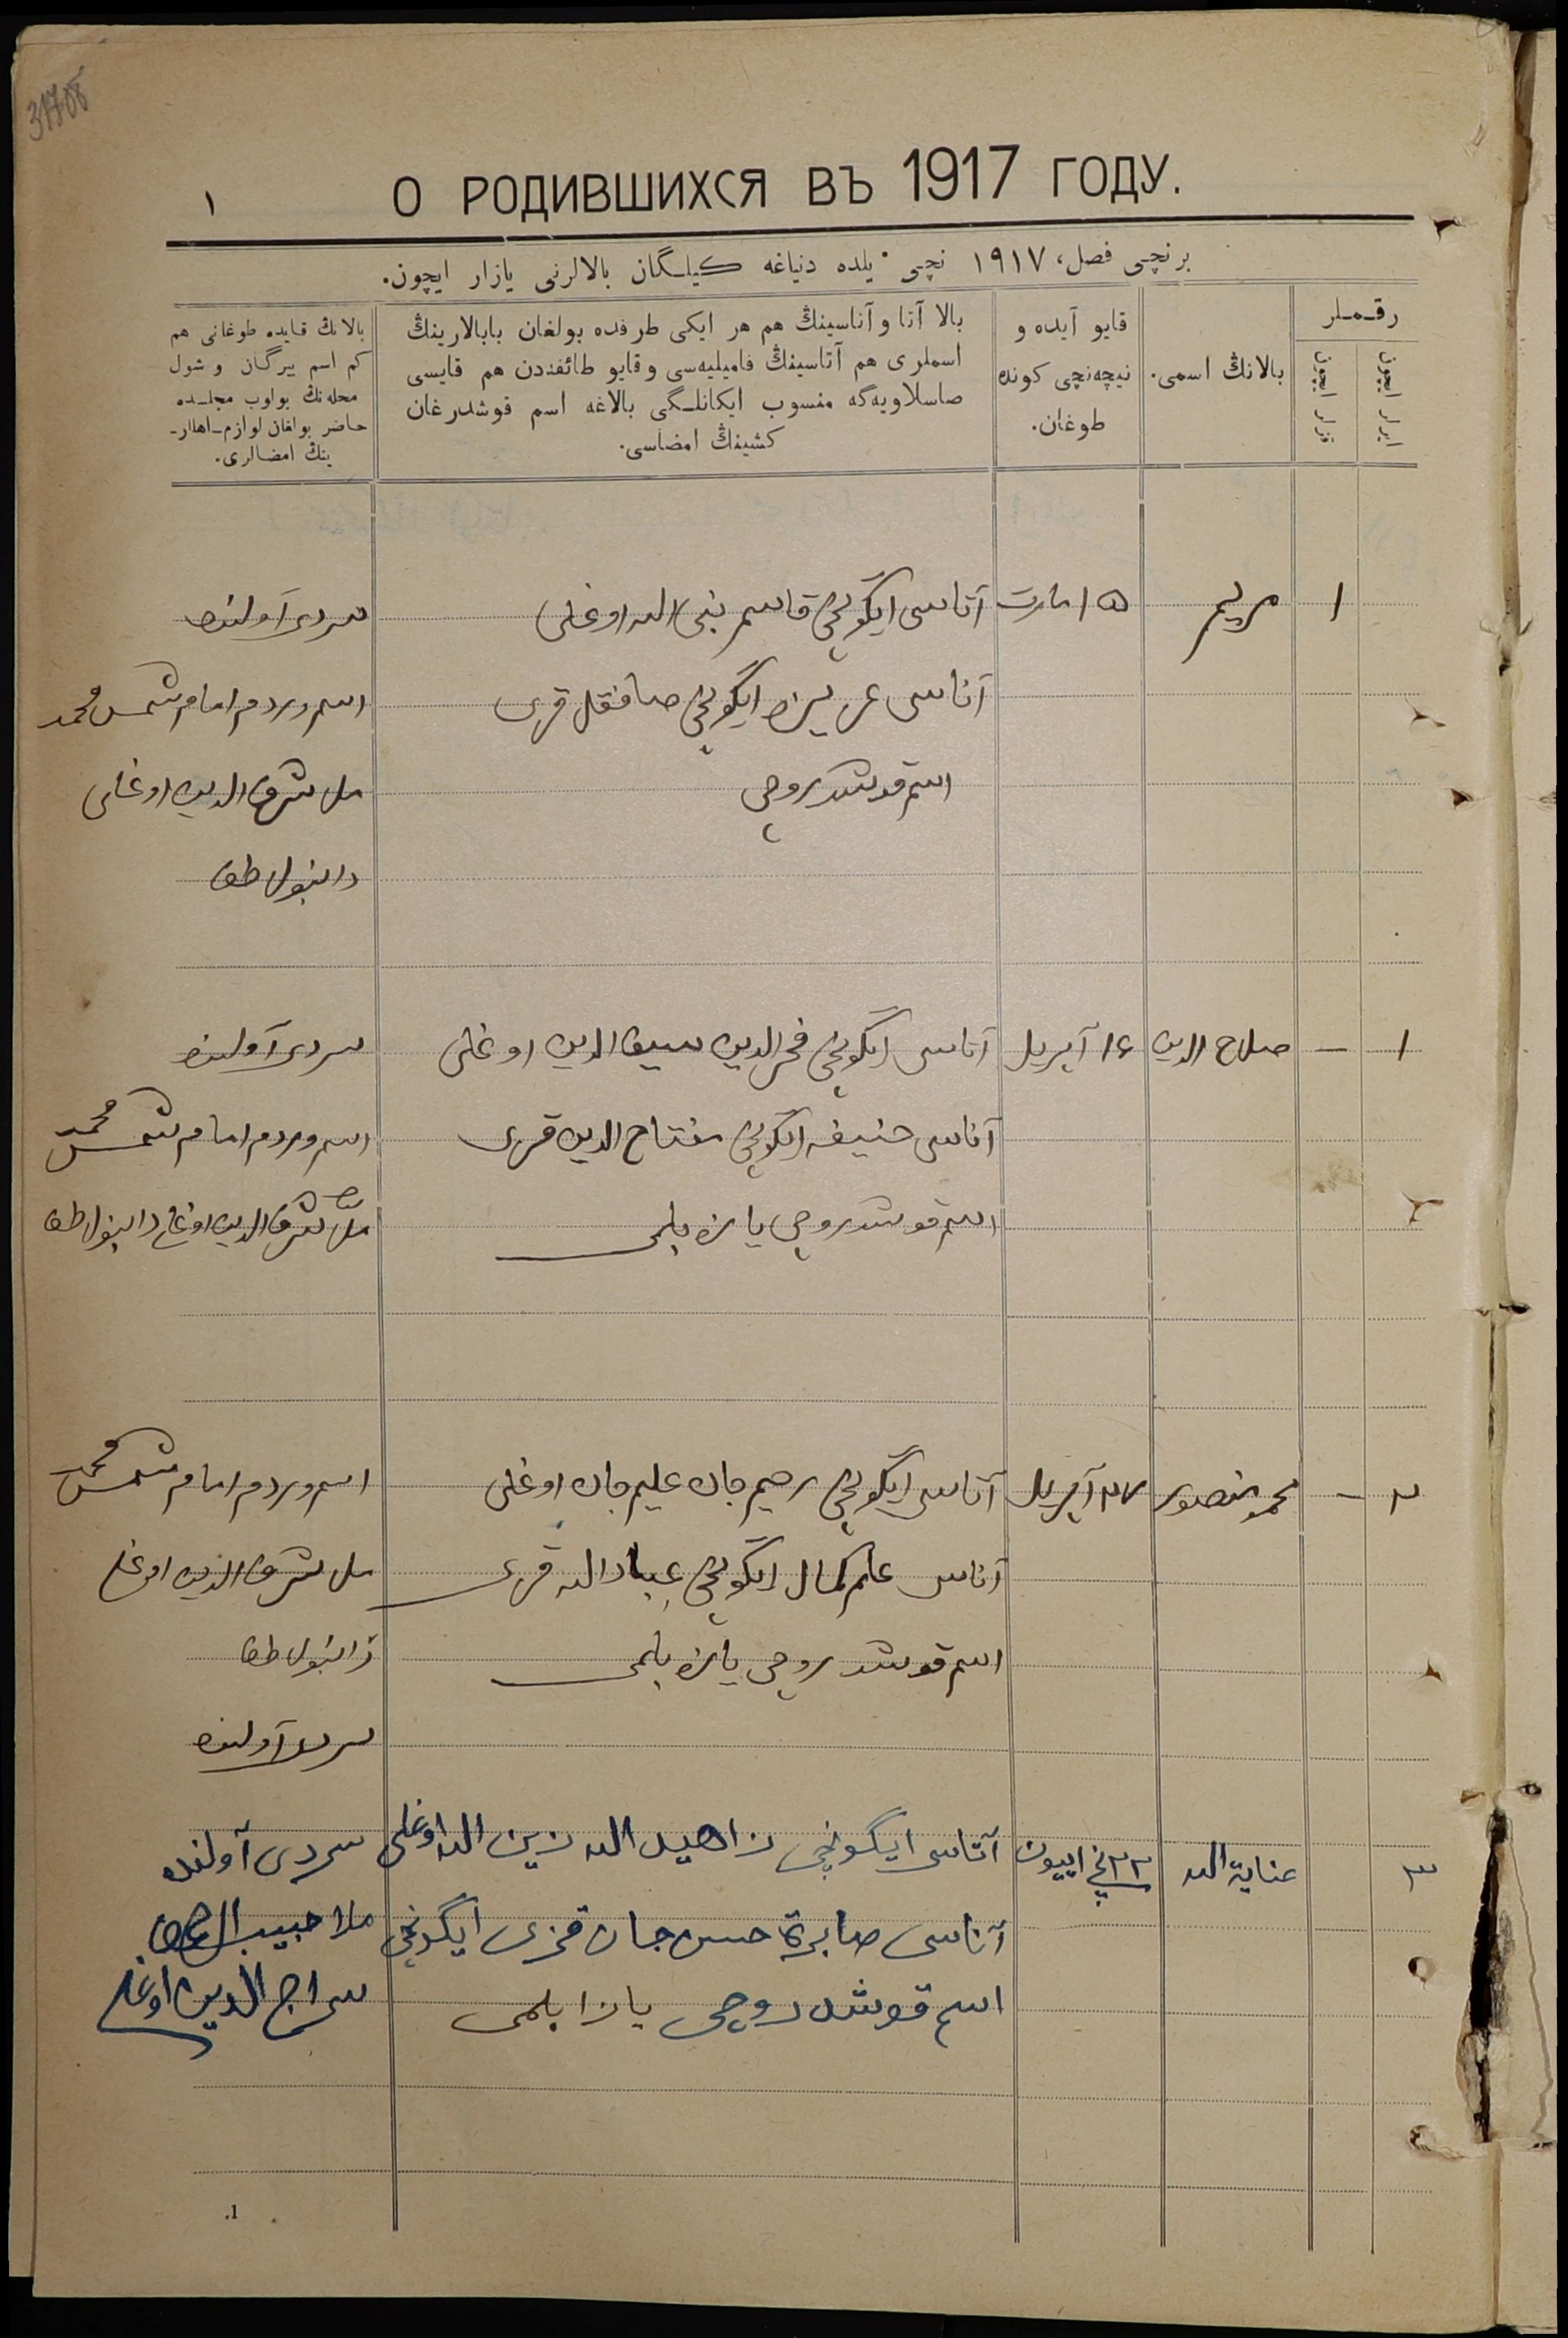 31708
О РОДИВШИХСЯ ВЪ 1917 ГОДУ.
١
برنچی فصل، ١٩١٧ نچی یلده دنیاغه كیلـگان بالالرنی یازار ایچون.
رقـمـلر
ایرلر ایچون
قزلر ایچون
بالانڭ اسمی.
قایو آیده و
نیچه‌نچی كونده
طوغان.
بالا آتا و آناسینڭ هم هر ایكی طرفده بولغان بابالارینڭ
اسملری هم آتاسینڭ فامیلیه‌سی و قایو طائفه‌دن هم قایسی
صاسلاویه‌گه منسوب ایكانلـگی بالاغه اسم قوشدرغان
كشینڭ امضاسی.
بالانڭ قایده طوغانی هم
كم اسم بیرگان و شول
محله‌نڭ بولوب مجلـده
حاضر بولغان لوازم اهللر-
ینڭ امضالری.
١
مریم
١٥ مارت
آتاسی ایگونچی قاسم نبی الله اوغلی
آناسی ایگونچی قزی
اسم قوشدروچی
سردی آولنده
اسم ویردم امام شمس محمد
ملا شرف الدین اوغلی
١ —
صلاح الدین
١۶ آپریل
آتاسی ایگونچی فخرالدین سیف الدین اوغلی
آناسی حنیفه ایگونچی مفتاح الدین قزی
اسم قوشدروچی یازه بلمی
سردی آولنده
اسم ویردم امام شمس محمد
ملا شرف الدین اوغلی
٢ —
محمد منصور
٢٧ آپریل
آتاسی ایگونچی رحیم جان علیم جان اوغلی
آناسی ایگونچی عبادالله قزی
اسم قوشدروچی یازه بلمی
اسم ویردم امام شمس محمد
ملا شرف الدین اوغلی
سردی آولنده
٣
عنایة الله
٢٢ نچی اییون
آتاسی ایگونچی زاهید الله زین الله اوغلی
آناسی صابرة حسن جان قزی ایگونچی
اسم قوشدروچی یازا بلمی
سردی آولنده
ملا حبیب الرحمن
سراج الدین اوغلی
1.